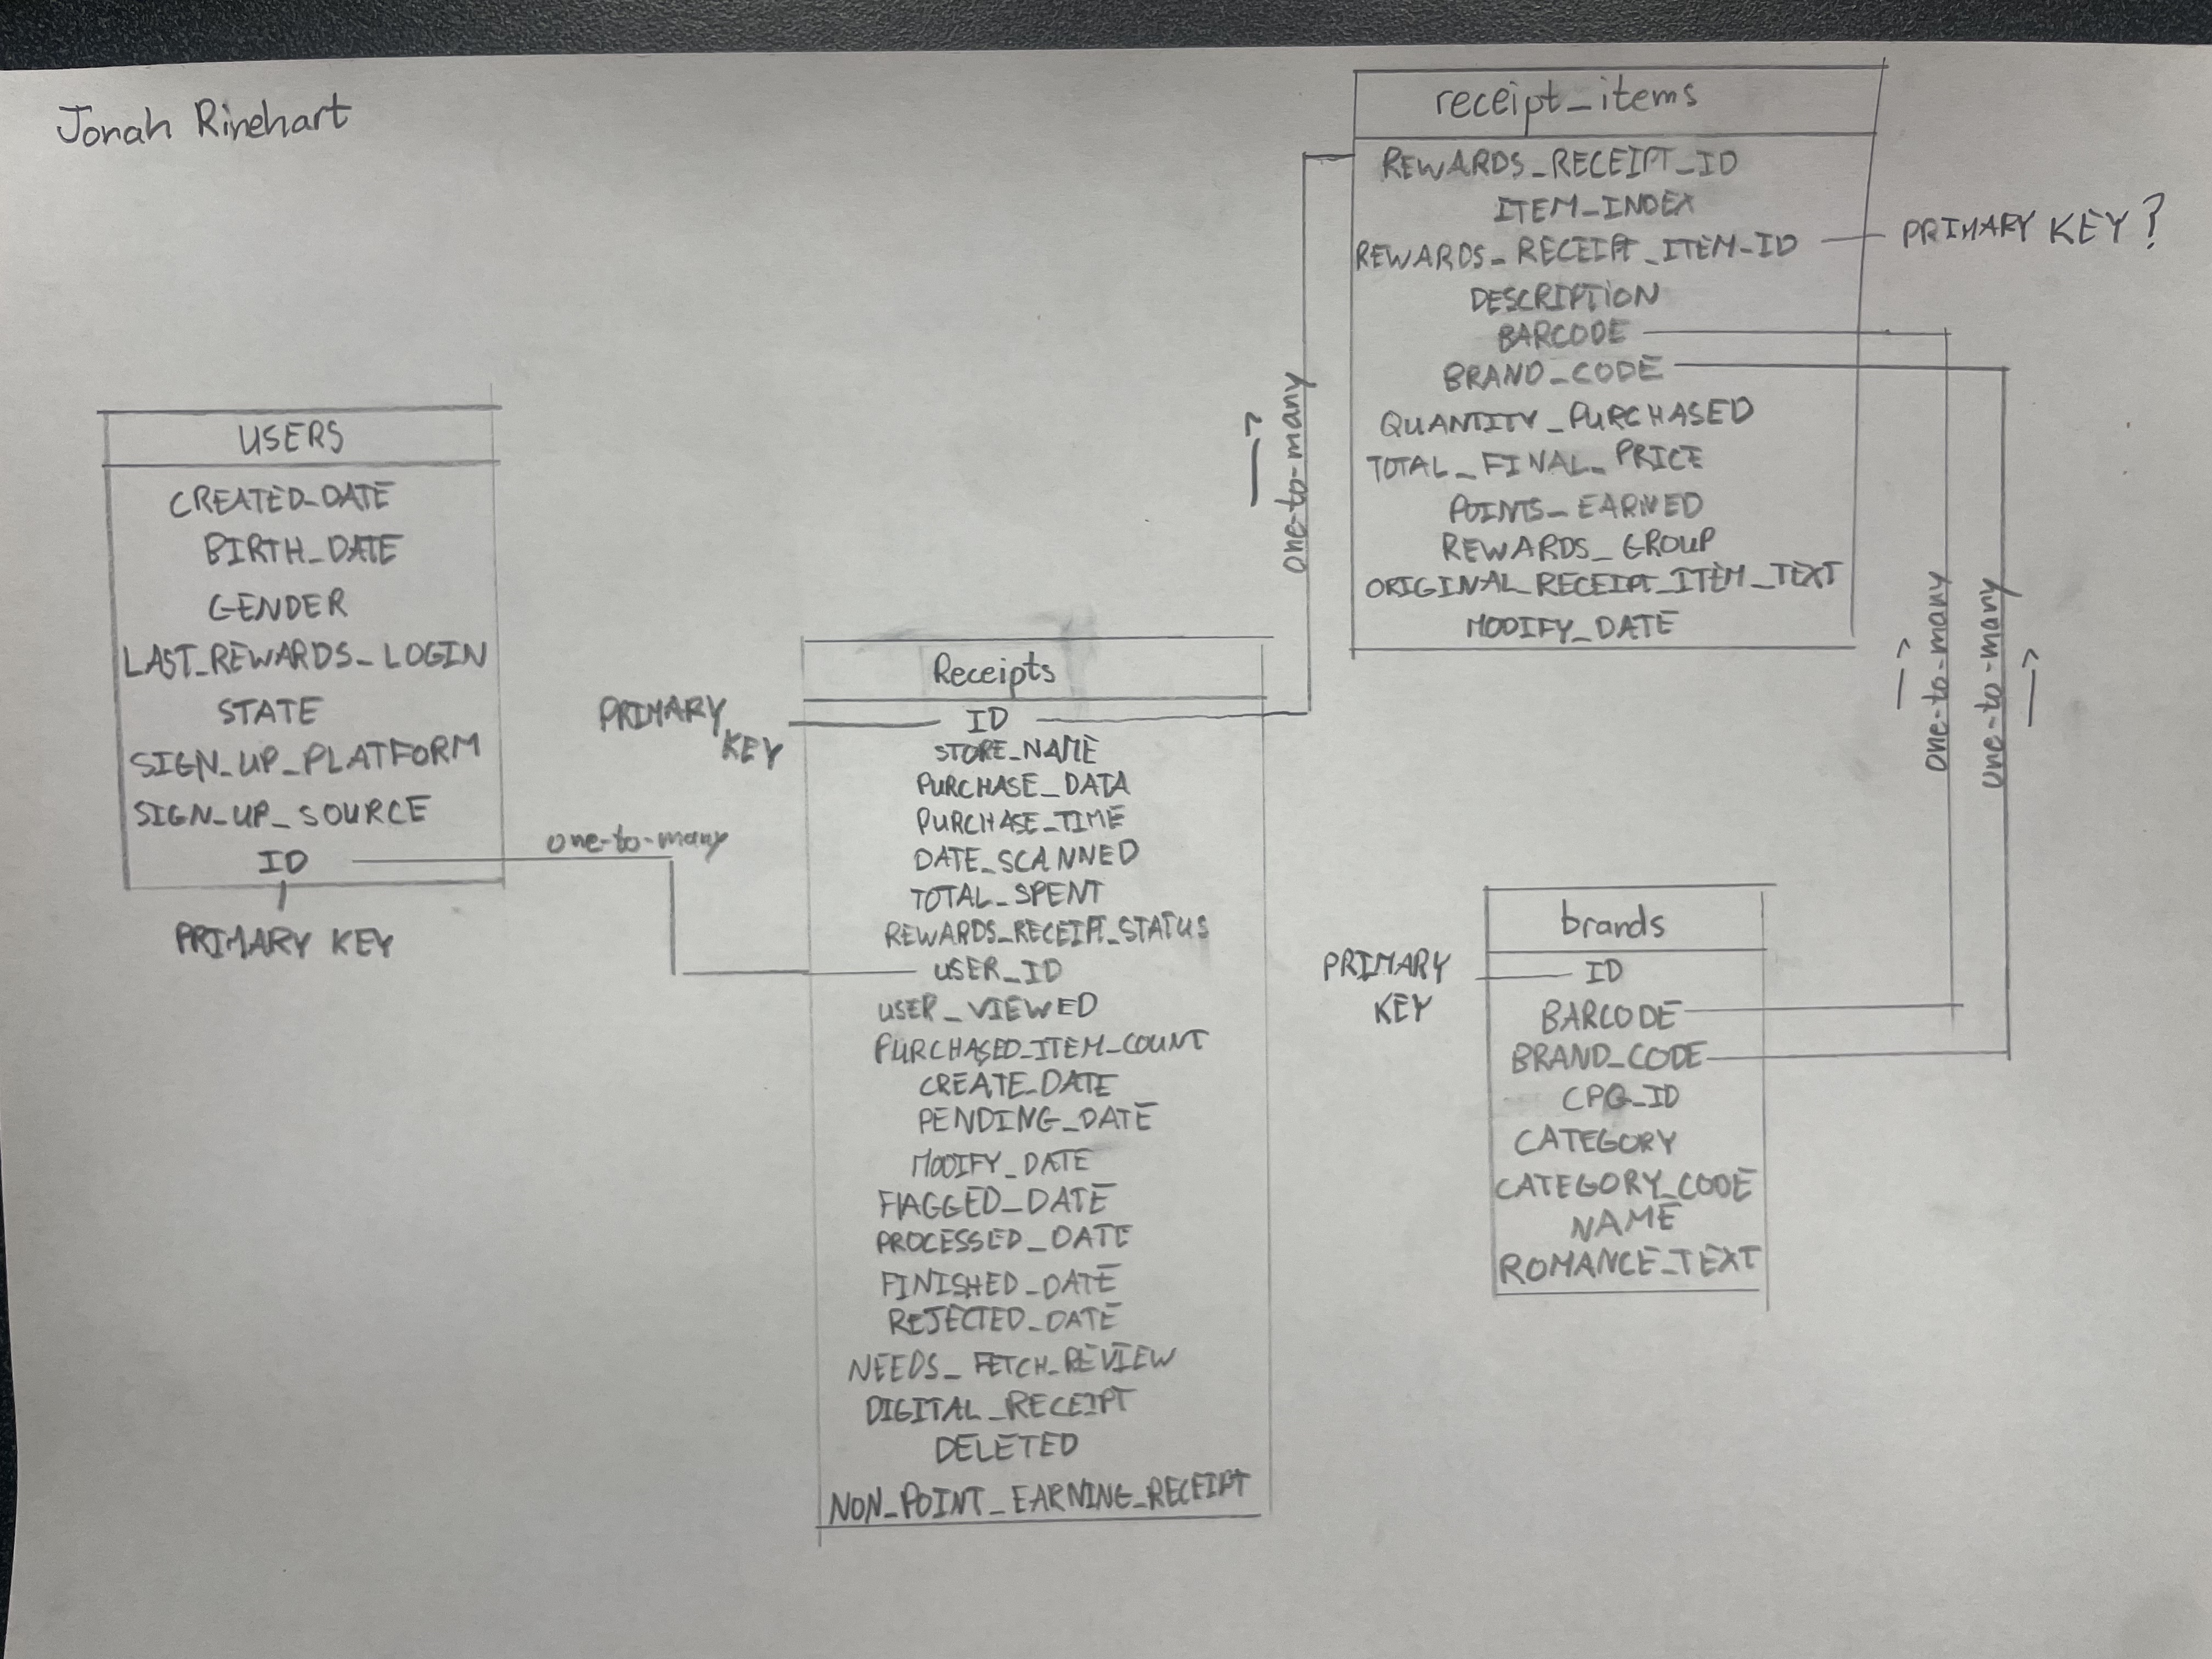 Jonah Rinehart
USERS
CREATED_DATE
BIRTH_DATE
GENDER
LAST_REWARDS_LOGIN
STATE
SIGN_UP_PLATFORM
SIGN_UP_SOURCE
ID
PRIMARY KEY
one-to-many
Receipts
PRIMARY
KEY
ID
STORE_NAME
PURCHASE_DATA
PURCHASE_TIME
DATE_SCANNED
TOTAL_SPENT
REWARDS_RECEIPT_STATUS
USER_ID
USER_VIEWED
PURCHASED_ITEM_COUNT
CREATE_DATE
PENDING_DATE
MODIFY_DATE
FlAGGED_DATE
PROCESSED_DATE
FINISHED_DATE
REJECTED_DATE
NEEDS_FETCH_REVIEW
DIGITAL_RECEIPT
DELETED
NON_POINT_EARNING_RECEIPT
one-to-many
receipt_items
REWARDS_RECEIPT_ID
ITEM_INDEX
REWARDS_RECEIPT_ITEM-ID
PRIMARY KEY?
DESCRIPTION
BARCODE
BRAND_CODE
QUANTITY_PURCHASED
TOTAL_FINAL_PRICE
POINTS_EARNED
REWARDS_GROUP
ORIGINAL_RECEIPT_ITEM_TEXT
MODIFY_DATE
one-to-many
one-to-many
brands
PRIMARY
KEY
ID
BARCODE
BRAND_CODE
CPG_ID
CATEGORY
CATEGORY_CODE
NAME
ROMANCE_TEXT